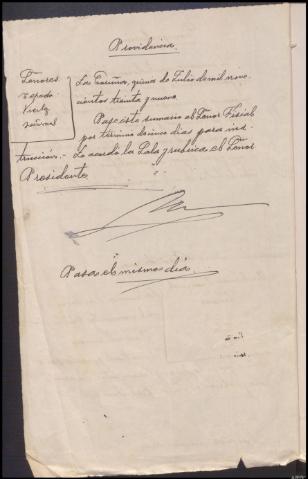 Providencia.
Señores
Tejada
Sandoval
La Coruña, quince de Julio de mil nove-
cientos treinta y nueve.
Pase este sumario al Señor Fiscal
por término de cinco días para ins-
trucción.- Lo acordó la Sala y rubrica el Señor
Presidente.
Pasa el mismo día